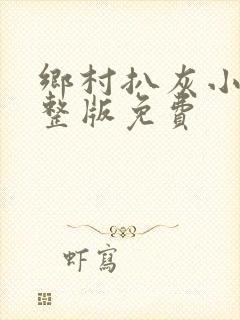 鄉村扒灰小
整版免費
虾寫